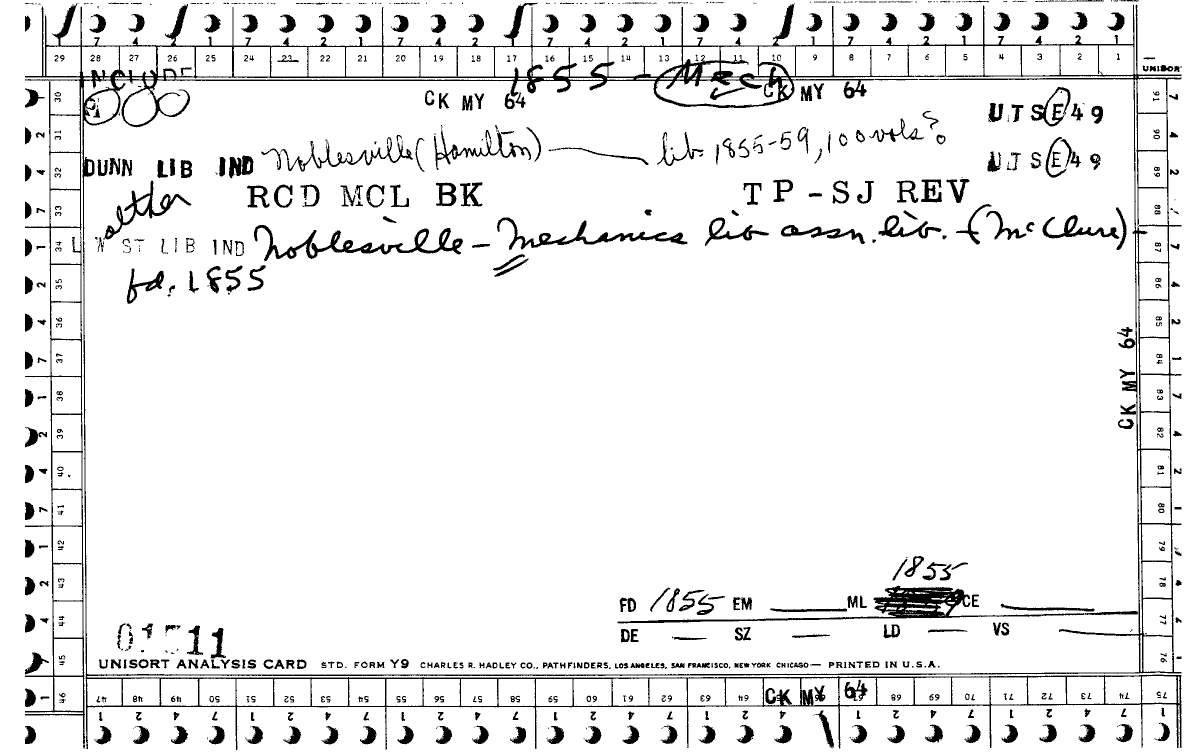 7 4 2 1 7 4 2 1 7 4 2 1 7 4 2 1 7 4 2 1 7 4 2 1 7 4 2 1
29 28 27 26 25 24 23 22 21 20 19 18 17 16 15 14 13 12 11 10 9 8 7 6 5 4 3 2 1 UNISOR
INCLUDE 1855 - Mech
CK MY 64 CK MY 64 UTSE49
DUNN LIB IND Noblesville (Hamilton) — lib. 1855-59, 100 vols? UTSE49
RCD MCL BK TP-SJ REV
L W ST LIB IND Noblesville - Mechanics lib assn. lib. - (McClure) -
fd. 1855
CK MY 64
1855
FD 1855 EM ML CE
DE — SZ — LD — VS —
01511
UNISORT ANALYSIS CARD STD. FORM Y9 CHARLES R. HADLEY CO., PATHFINDERS, LOS ANGELES, SAN FRANCISCO, NEW YORK CHICAGO — PRINTED IN U.S.A.
30 31 32 33 34 35 36 37 38 39 40 41 42 43 44 45 46
91 90 89 88 87 86 85 84 83 82 81 80 79 78 77 76 75
47 48 49 50 51 52 53 54 55 56 57 58 59 60 61 62 63 64 CK MY 64 68 69 70 71 72 73 74
1 2 4 7 1 2 4 7 1 2 4 7 1 2 4 7 1 2 4 7 1 2 4 7 1